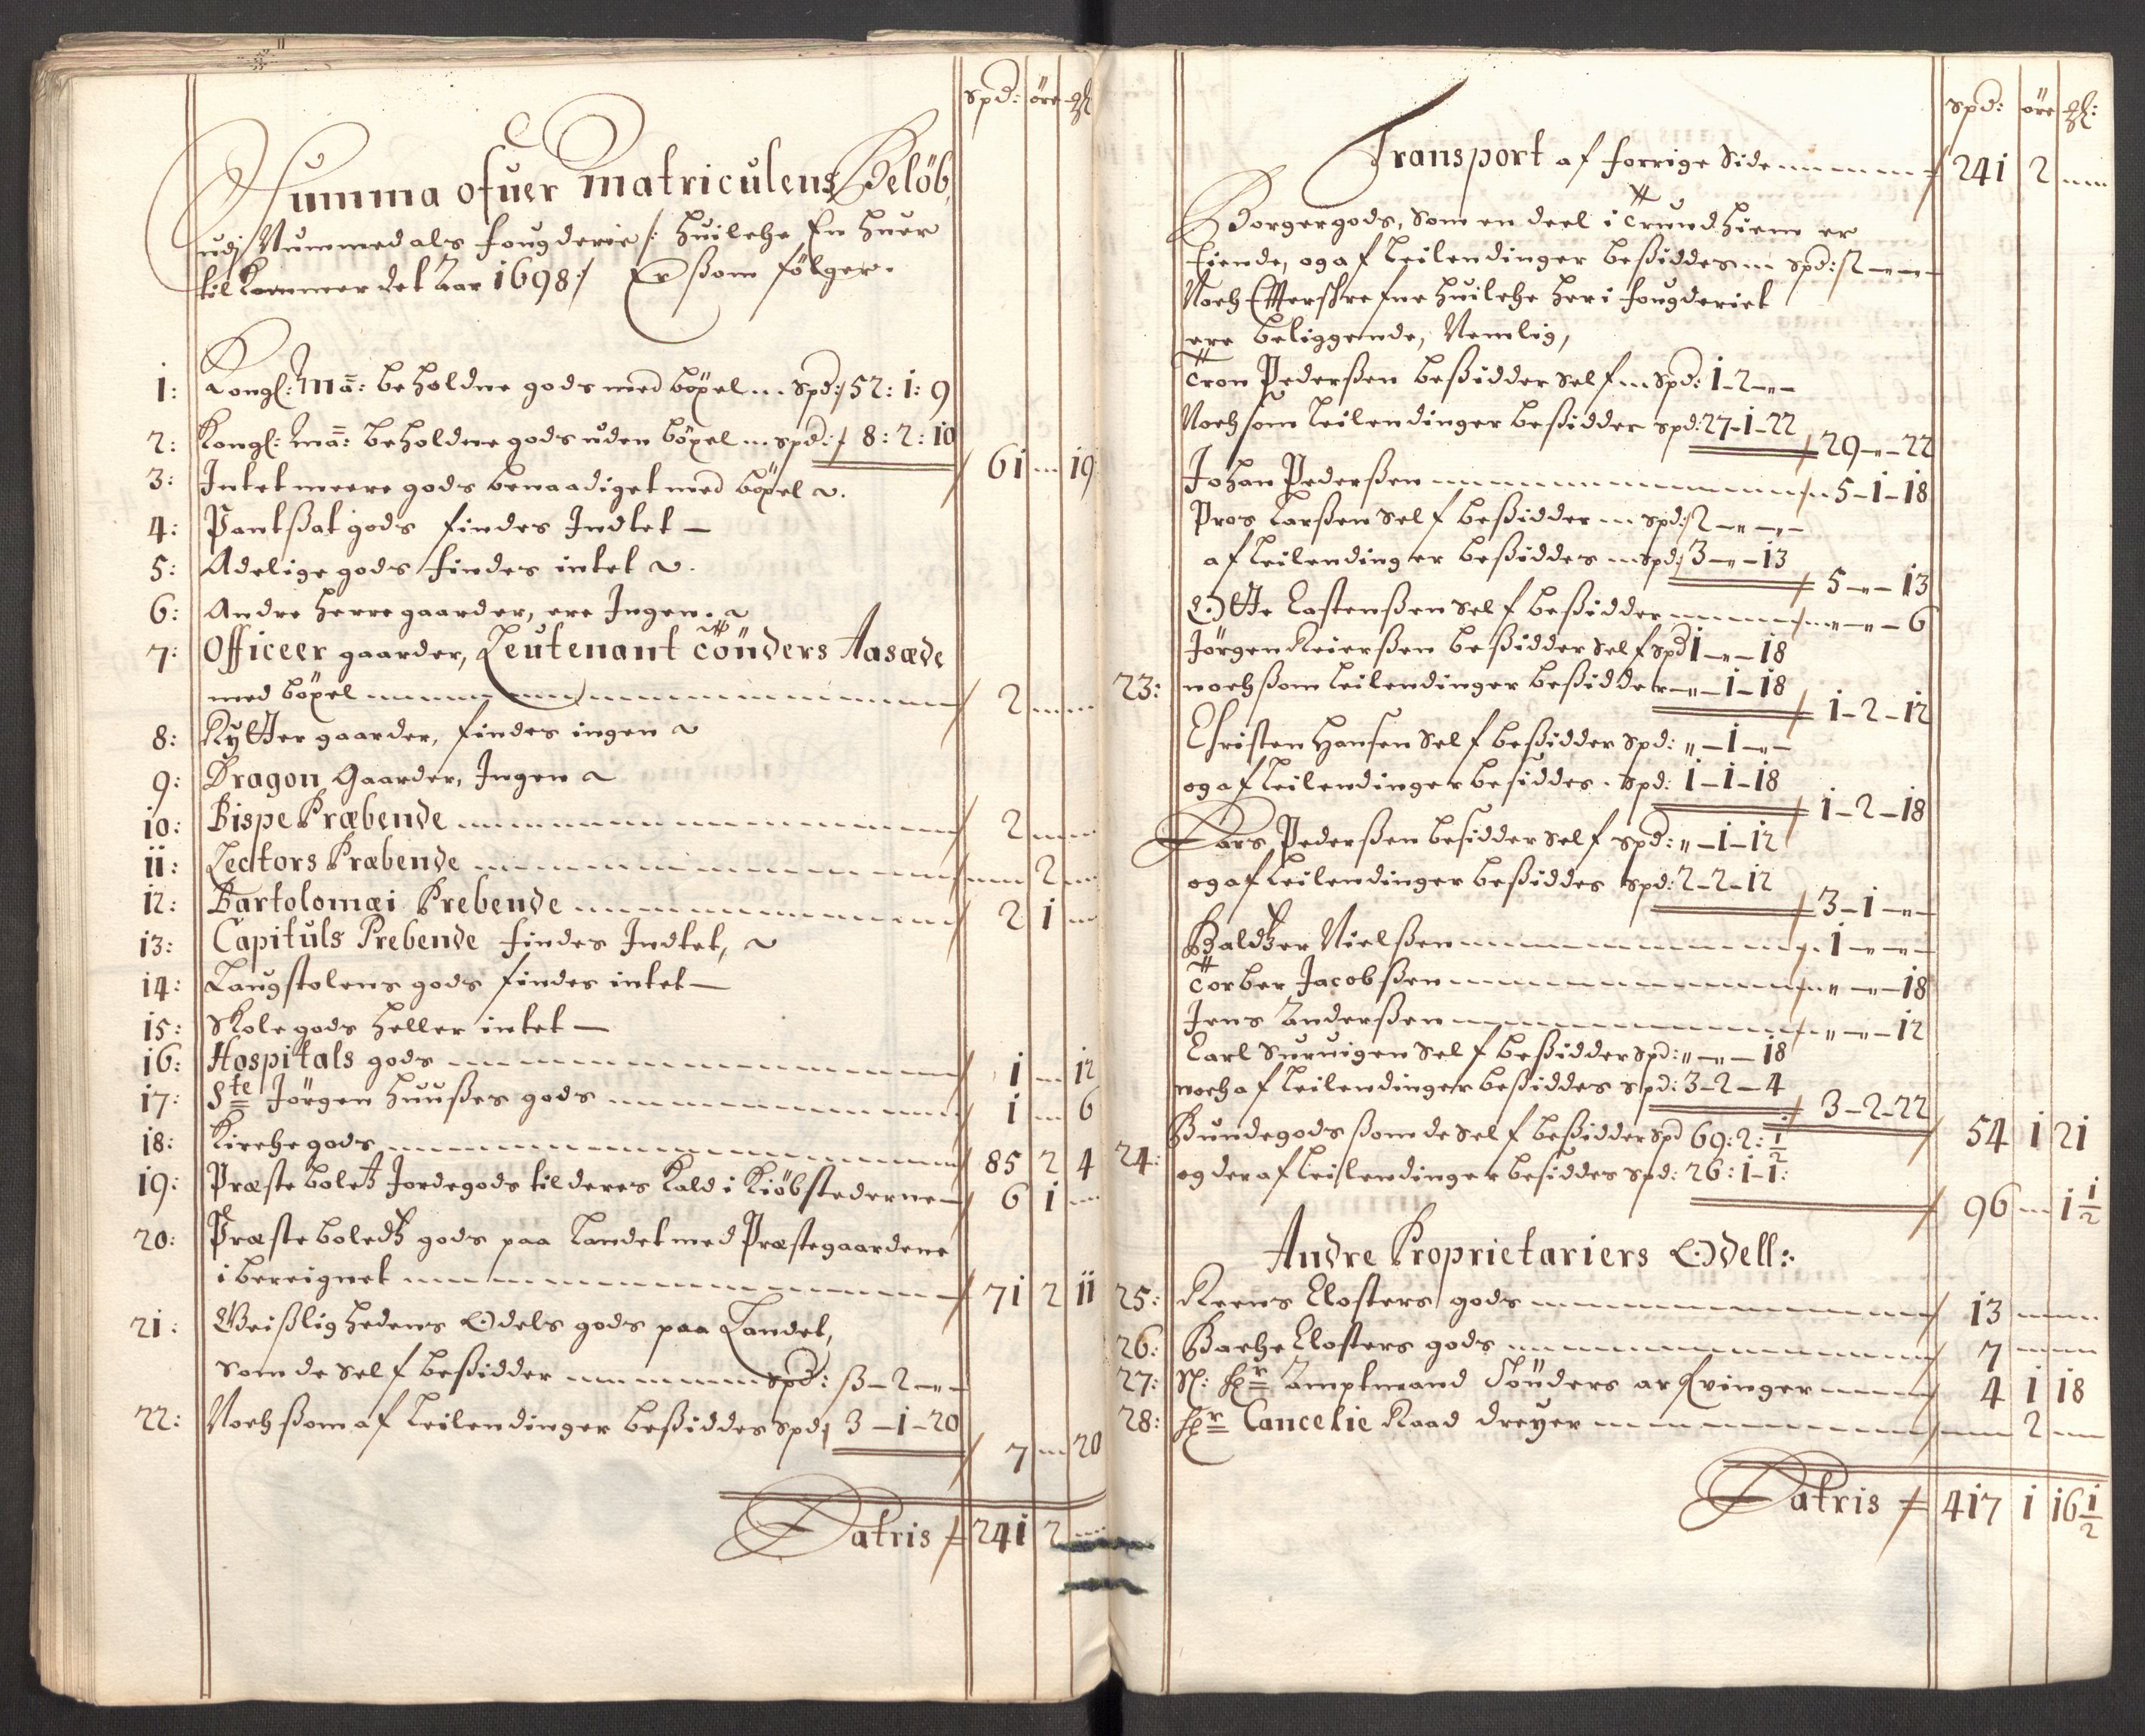 spd: öre
Summa ofuer Matriculens Belöb,
udj Nummedals fougderie /: huilche En huer
til kommer det Aar 1698 :/ Er ßom følger.
1: Kongl: Ma: beholdne gods med böxel spd: 52: 1: 9
2: Kongl: Ma: beholdne gods uden böxel spd: 8: 2: 10
61 19
3: Intet meere gods benaadiget med böxel
4: Pantsat gods findes Indtet
5: Adelige gods findes intet
6: Andre herre gaarder, ere Ingen.
7: Officeer gaarder, Leutenant Tönders Aasæde
med böxel 2
8: Rytter gaarder, findes ingen
9: Dragon Gaarder, Ingen
10: Bispe Præbende 2
11: Lectors Præbende 2
12: Bartolomæi Prebende 2 1
13: Capituls Prebende findes Indtet,
14: Laugstolens gods findes intet
15: Skole gods heller intet
16: Hospitals gods 1 12
17: Ste Jörgen huußes gods 1 6
18: Kirche gods 85 2 4
19: Præste boletz Jordegods til deres Kald i Kiöbstederne 6 1
20: Præste boledtz gods paa Landet med Præstegaardene
i bereignet 71 2 11
21: Geißlighedens Odels gods paa Landet,
som de self beßidder spd: 3-2-"-
22: Noch ßom af Leilendinger beßiddes spd: 3-1-20
7 20
Latris 241 2
spd: öre
Transport af forrige Side 241 2
Borgergods, som en deel i Trundhiem er
Eiende, og af Leilendinger beßiddes spd: 2-"-"-
Noch Efterskrefne huilche her i fougderiet
ere beliggende, Nemlig,
Tron Pederßen beßidder self spd: 1-2-"-
Noch som Leilendinger beßidder spd: 27-1-22
29-"-22
Johan Pederßen 5-1-18
Pros Larßen self beßidder spd: 2-"-"-
af Leilendinger beßiddes spd: 3-"-13
5-"-13
Otte Castenßen self beßidder "-"-6
Jörgen Reierßen beßidder self spd 1-"-18
23: noch ßom Leilendinger beßidder "-1-18
1-2-12
Christen Hansen self beßidder spd: "-1-"-
og af Leilendinger besiddes. spd: 1-1-18
1-2-18
Lars Pederßen besidder self spd: "-1-12
og af Leilendinger beßiddes spd: 2-2-12
3-1-"-
Baldtzer Nielßen 1-"-"-
Torber Jacobßen "-"-18
Jens Anderßen "-"-12
Carl Suruigen self beßidder spd: "-"-18
noch af Leilendinger beßiddes spd: 3-2-4
3-2-22
54 1 21
24: Bundegods ßom de self beßidder spd 69: 2: 1/2
og der af Leilendinger besiddes spd: 26: 1-1:
96 1 1/2
Andre Proprietariers Odell:
25: Reens Closters gods 13
26: Bache Closters gods 7
27: Sl: Hr Amptmand Tönders arfvinger 4 1 18
28: Hr Cancelie Raad Dreyer 2
Latris 417 1 16 1/2